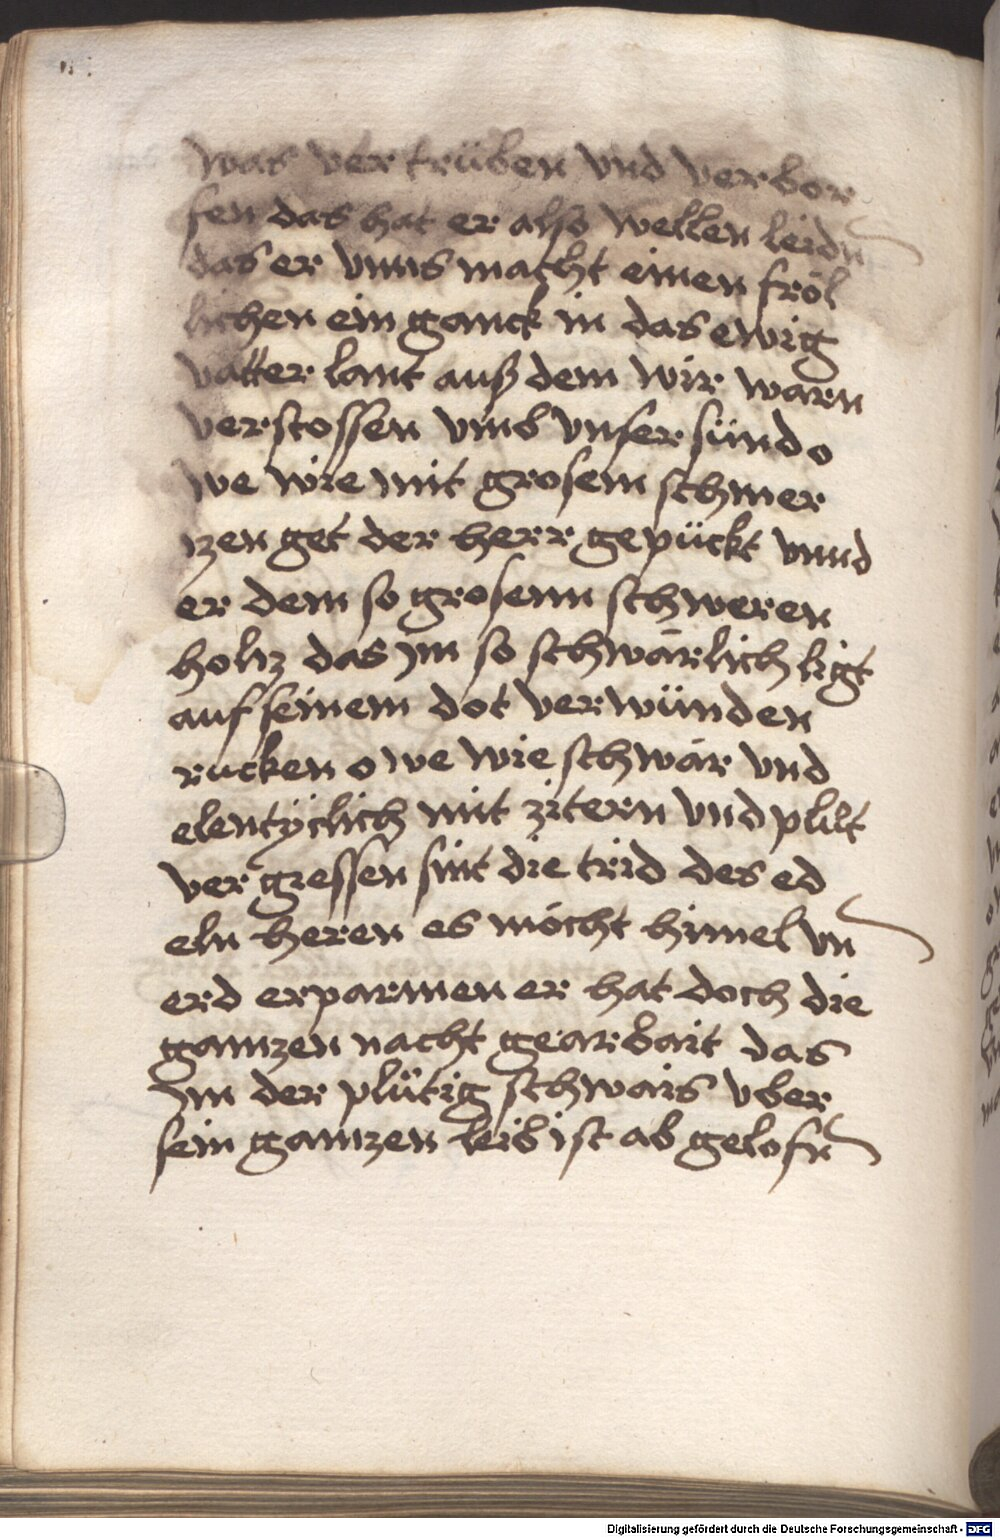 was ver trüben vnd verbor
fen das hat er also wellen leidn
das er vnns macht einen fröl
lichen ein ganck in das ewig
vatter lant auß dem wir warn
verstossen vmb vnser sünd o
we wie mit grosem schmer
tzen get der herr gepückt vnnd
er dem so grosenn schweren
holtz das jm so schwärlich ligt
auf seinem dot verwünden
rucken o we wie schwär vnd
elentÿclich mit zitern vnd plůt
ver giessen sint die trid des ed
eln heren es möcht himel vn
erd erparmen er hat doch die
gantzen nacht gearbait das
Im der plütig schwais vber
sein gantzen leib ist ab gelofn
Digitalisierung gefördert durch die Deutsche Forschungsgemeinschaft - DFG